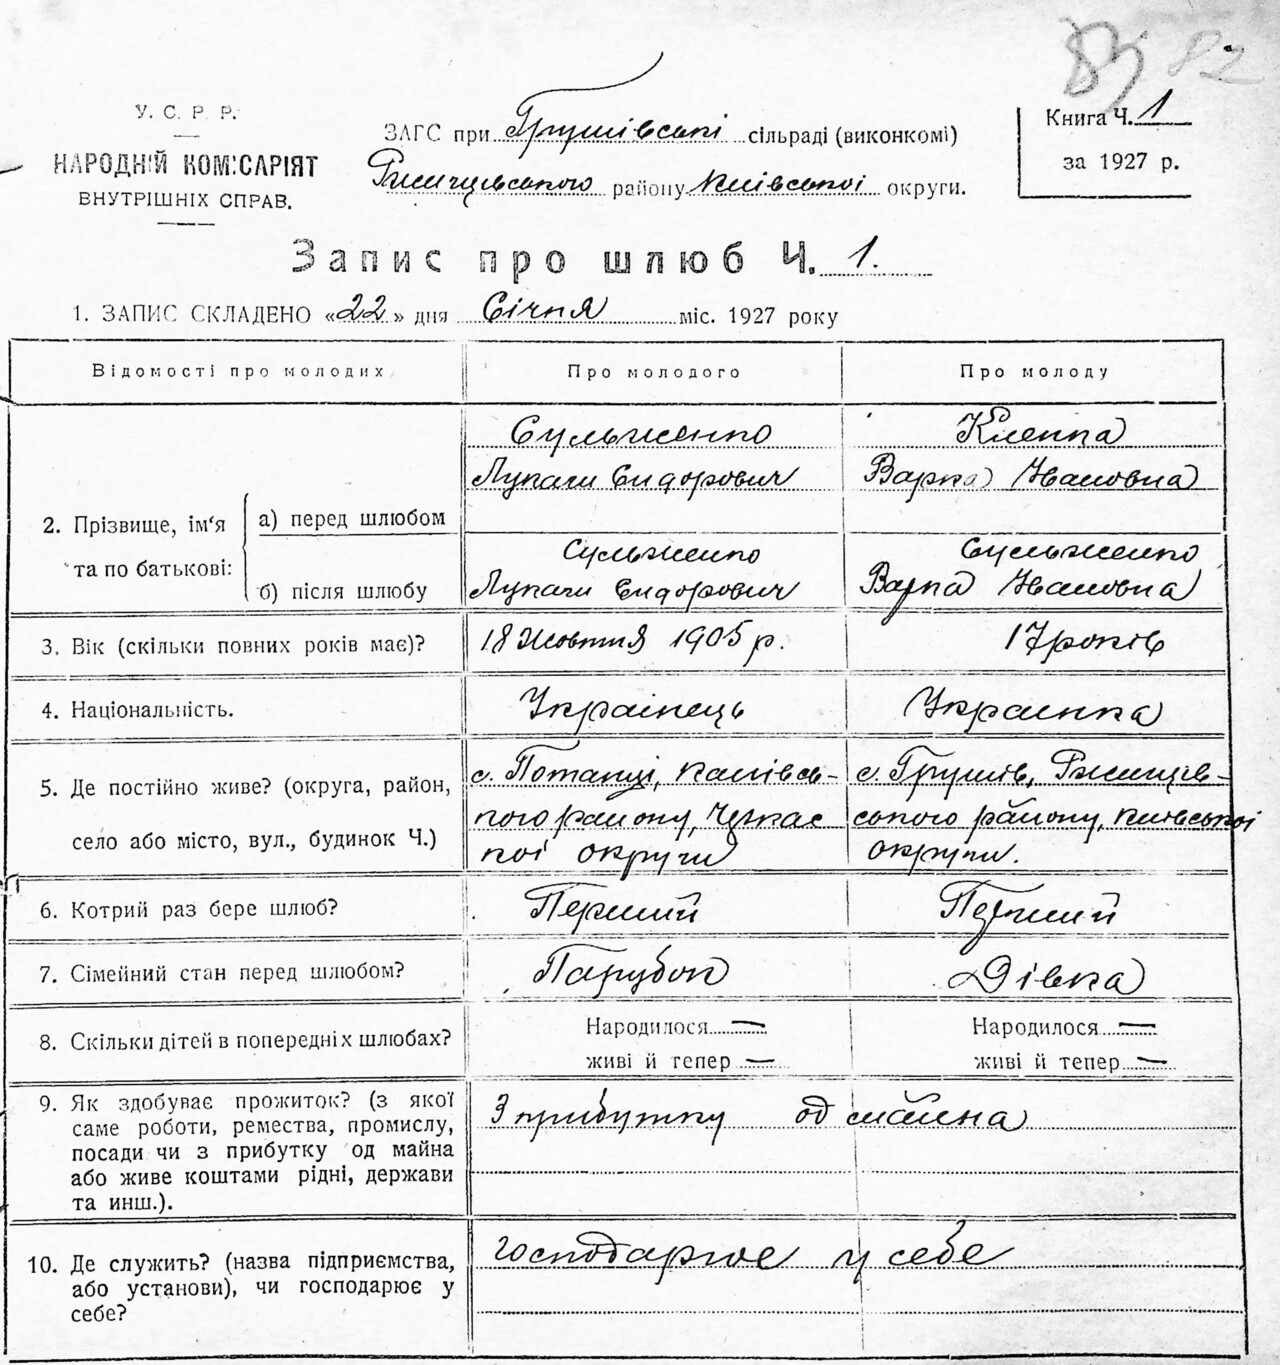 82
У. С. Р. Р.
НАРОДНІЙ КОМІСАРІЯТ
ВНУТРІШНІХ СПРАВ.
ЗАГС при Грушівські сільраді (виконкомі)
Ржищівського району Київської округи.
Книга Ч. 1
за 1927 р.
Запис про шлюб Ч. 1.
1. ЗАПИС СКЛАДЕНО «22» дня Січня міс. 1927 року
Відомості про молодих
Про молодого
Про молоду
2. Прізвище, ім'я та по батькові:
а) перед шлюбом
Сульженко
Лукаш Сидорович
Кленка
Варка Івановна
б) після шлюбу
Сульженко
Лукаш Сидорович
Сульженко
Варка Івановна
3. Вік (скільки повних років має)?
18 Жовтня 1905 р.
17 років
4. Національність.
Українець
Украінка
5. Де постійно живе? (округа, район,
село або місто, вул., будинок Ч.)
с. Потапці, Канівсь-
кого району, Черкас
кої округи
с. Грушів, Ржищів-
ського району, Київської
округи.
6. Котрий раз бере шлюб?
Перший
Перший
7. Сімейний стан перед шлюбом?
Парубок
Дівка
8. Скільки дітей в попередніх шлюбах?
Народилося —
живі й тепер —
Народилося —
живі й тепер —
9. Як здобуває прожиток? (з якої
саме роботи, ремества, промислу,
посади чи з прибутку од майна
або живе коштами рідні, держави
та инш.).
З прибутку од майна
10. Де служить? (назва підприємства,
або установи), чи господарює у
себе?
господарює у себе